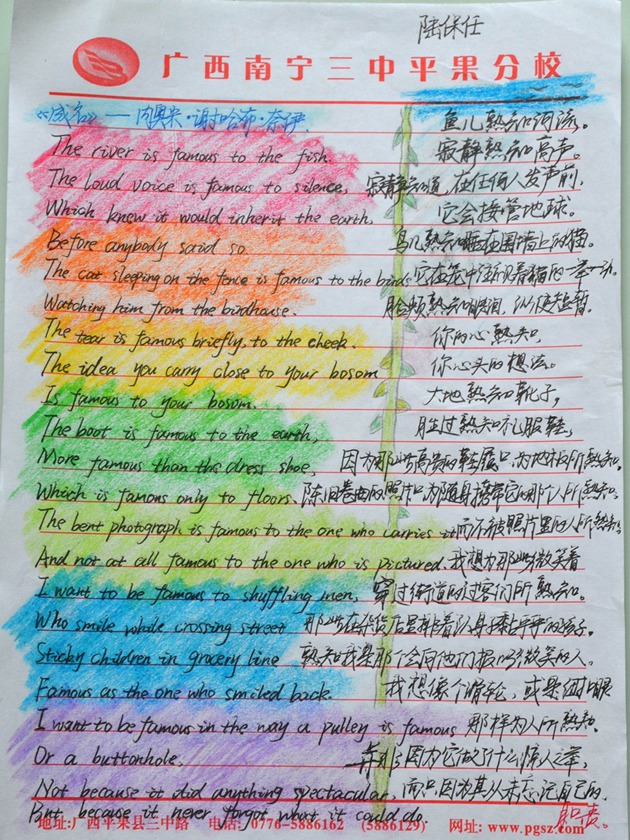 陆保任
广西南宁三中平果分校
《成名》——内奥米·谢哈布·奈伊
The river is famous to the fish.
The loud voice is famous to silence,
Which knew it would inherit the earth,
Before anybody said so.
The cat sleeping on the fence is famous to the birds
Watching him from the birdhouse.
The tear is famous briefly, to the cheek.
The idea you carry close to your bosom
Is famous to your bosom.
The boot is famous to the earth,
More famous than the dress shoe,
Which is famous only to floors.
The bent photograph is famous to the one who carries it
And not at all famous to the one who is pictured.
I want to be famous to shuffling men,
Who smile while crossing street
Sticky children in grocery line
Famous as the one who smiled back.
I want to be famous in the way a pulley is famous
Or a buttonhole.
Not because it did anything spectacular,
But because it never forgot what it could do.
鱼儿熟知河流。
寂静熟知高声。
寂静知道,在任何人发声前,
它会接管地球。
鸟儿熟知睡在围墙上的猫。
它在笼中注视着猫的一举一动。
脸颊熟知眼泪,纵使短暂。
你的心熟知,
你心头的想法。
大地熟知靴子,
胜过熟知礼服鞋,
因为那些高贵的鞋履只为地板所熟知。
陈旧卷曲的照片只为随身携带它的那个人所熟知。
而不被照片里的人所熟知。
我想为那些微笑着
穿过街道的过客们所熟知。
那些在杂货店里排着队身黏乎乎的孩子。
熟知我是那个会向他们报以微笑的人。
我想像个滑轮,或是扣眼
那样为人所熟知。
并非因为它做了什么惊人之举,
而只因为其从未忘记自己的
职责。
地址:广西平果县三中路 电话:0776-5886162 (5886129) 网址:www.pgsz.com